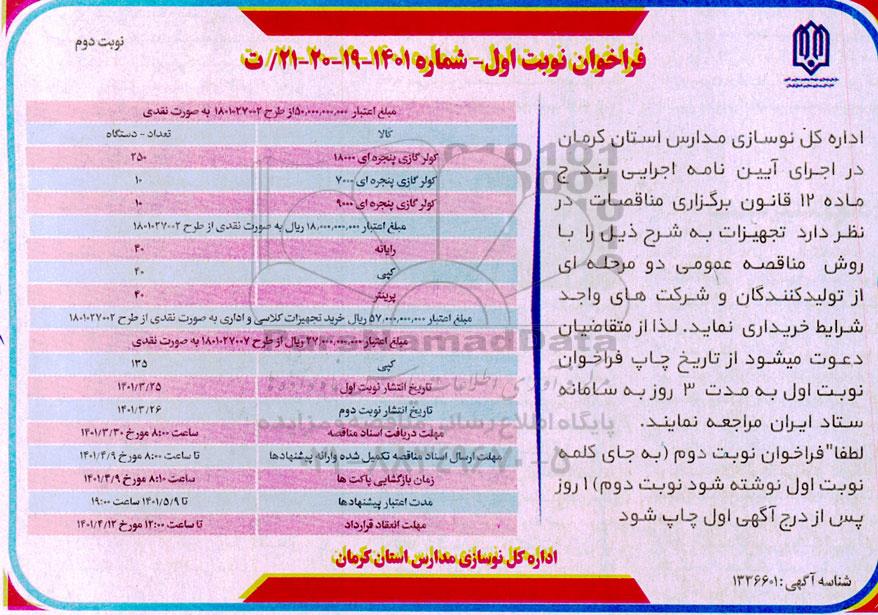 نوبت دوم
فراخوان نوبت اول- شماره ۱۴۰۱-۱۹-۲۰-۲۱/ ت
اداره کل نوسازی مدارس استان کرمان
در اجرای آیین نامه اجرایی بند ج
ماده ۱۲ قانون برگزاری مناقصات در
نظر دارد تجهیزات به شرح ذیل را با
روش مناقصه عمومی دو مرحله ای
از تولیدکنندگان و شرکت های واجد
شرایط خریداری نماید. لذا از متقاضیان
دعوت میشود از تاریخ چاپ فراخوان
نوبت اول به مدت ۳ روز به سامانه
ستاد ایران مراجعه نمایند.
لطفا"فراخوان نوبت دوم (به جای کلمه
نوبت اول نوشته شود نوبت دوم) ۱ روز
پس از درج آگهی اول چاپ شود
شناسه آگهی: ۱۳۳۶۶۰۱
مبلغ اعتبار ۵۰,۰۰۰,۰۰۰,۰۰۰از طرح ۱۸۰۱۰۲۷۰۰۲ به صورت نقدی
کالا تعداد - دستگاه
کولر گازی پنجره ای ۱۸۰۰۰ ۲۵۰
کولر گازی پنجره ای ۷۰۰۰ ۱۰
کولر گازی پنجره ای ۹۰۰۰ ۱۰
مبلغ اعتبار ۱۸,۰۰۰,۰۰۰,۰۰۰ ریال به صورت نقدی از طرح ۱۸۰۱۰۲۷۰۰۲
رایانه ۴۰
کپی ۴۰
پرینتر ۴۰
مبلغ اعتبار ۵۷,۰۰۰,۰۰۰,۰۰۰ ریال خرید تجهیزات کلاسی و اداری به صورت نقدی از طرح ۱۸۰۱۰۲۷۰۰۲
مبلغ اعتبار ۲۷,۰۰۰,۰۰۰,۰۰۰ ریال از طرح ۱۸۰۱۰۲۷۰۰۷ به صورت نقدی
کپی ۱۳۵
تاریخ انتشار نوبت اول ۱۴۰۱/۳/۲۵
تاریخ انتشار نوبت دوم ۱۴۰۱/۳/۲۶
مهلت دریافت اسناد مناقصه ساعت ۸:۰۰ مورخ ۱۴۰۱/۳/۳۰
مهلت ارسال اسناد مناقصه تکمیل شده وارائه پیشنهادها تا ساعت ۸:۰۰ مورخ ۱۴۰۱/۴/۹
زمان بازگشایی پاکت ها ساعت ۸:۱۰ مورخ ۱۴۰۱/۴/۹
مدت اعتبار پیشنهادها تا ۱۴۰۱/۵/۹ ساعت ۱۹:۰۰
مهلت انعقاد قرارداد تا ساعت ۱۲:۰۰ مورخ ۱۴۰۱/۴/۱۲
اداره کل نوسازی مدارس استان کرمان